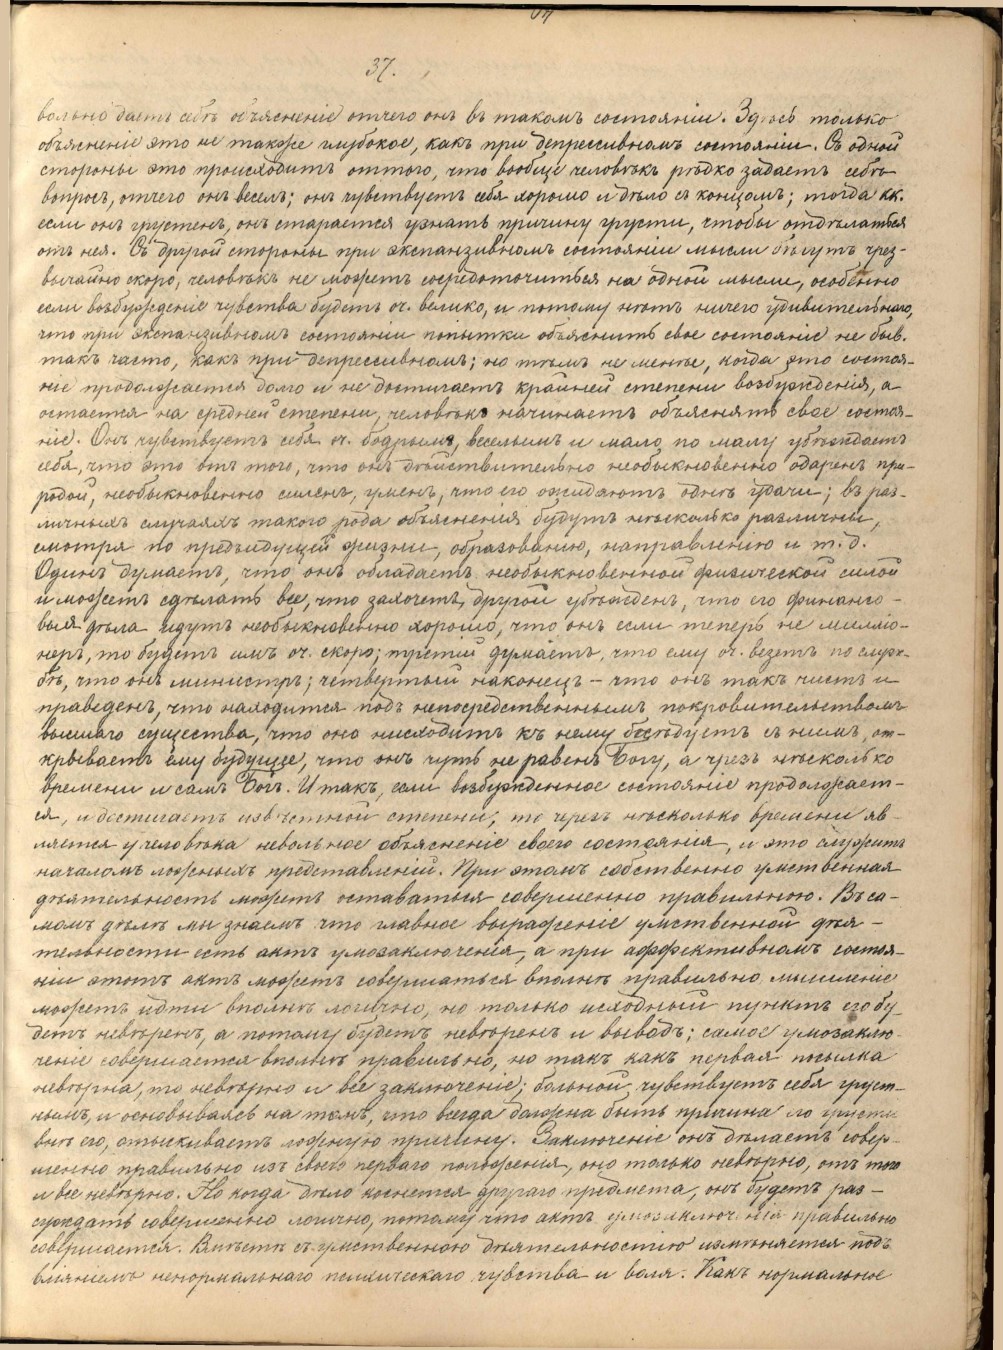 37.
вольно даетъ себѣ объясненіе отчего онъ въ такомъ состояніи. Здѣсь только
объясненіе это не такоже глубокое, какъ при депрессивномъ состояніи. Съ одной
стороны это происходитъ оттого, что вообще человѣкъ рѣдко задаетъ себѣ
вопросъ, отчего онъ веселъ; онъ чувствуетъ себя хорошо и дѣло съ концомъ; тогда кк.
если онъ грустенъ, онъ старается узнать причину грусти, чтобы отдѣлаться
отъ нея. Съ другой стороны при экспанзивномъ состояніи мысли бѣгутъ чрез-
вычайно скоро, человѣкъ не можетъ сосредоточиться на одной мысли, особенно
если возбужденіе чувства будетъ оч. велико, и потому нѣтъ ничего удивительнаго,
что при экспанзивномъ состояніи попытки объяснить свое состояніе не быв.
такъ часто, какъ при депрессивномъ; но тѣмъ не менѣе, когда это состоя-
ніе продолжается долго и не достигаетъ крайней степени возбужденія, а
остается на средней степени, человѣкъ начинаетъ объяснять свое состоя-
ніе. Онъ чувствуетъ себя оч. бодрымъ, веселымъ и мало по малу убѣждаетъ
себя, что это отъ того, что онъ дѣйствительно необыкновенно одаренъ при-
родой, необыкновенно силенъ, уменъ, что его ожидаютъ однѣ удачи; въ раз-
личныхъ случаяхъ такого рода объясненія будутъ нѣсколько различны,
смотря по предъидущей жизни, образованію, направленію и т.д.
Одинъ думаетъ, что онъ обладаетъ необыкновенной физической силой
и можетъ сдѣлать все, что захочетъ, другой убѣжденъ, что его финансо-
выя дѣла идутъ необыкновенно хорошо, что онъ если теперь не милліо-
неръ, то будетъ имъ оч. скоро; третій думаетъ, что ему оч. везетъ по служ-
бѣ, что онъ министръ; четвертый наконецъ – что онъ такъ чистъ и
праведенъ, что находится подъ непосредственнымъ покровительствомъ
высшаго существа, что оно нисходитъ къ нему бесѣдуетъ съ нимъ, от-
крываетъ ему будущее, что онъ чуть не равенъ Богу, а чрезъ нѣсколько
времени и самъ Богъ. Итакъ, если возбужденное состояніе продолжает-
ся, и достигаетъ извѣстной степени, то черезъ нѣсколько времени яв-
ляется у человѣка невольное объясненіе своего состоянія, и это служитъ
началомъ ложныхъ представленій. При этомъ собственно умственная
дѣятельность можетъ оставаться совершенно правильною. Въ са-
момъ дѣлѣ мы знаемъ что главное выраженіе умственной дѣя-
тельности есть актъ умозаключенія, а при аффективномъ состоя-
ніи этотъ актъ можетъ совершаться вполнѣ правильно мышленіе
можетъ идти вполнѣ логично, но только исходный пунктъ его бу-
детъ невѣренъ, а потому будетъ невѣренъ и выводъ; самое умозаклю-
ченіе совершается вполнѣ правильно, но такъ какъ первая посылка
невѣрна, то невѣрно и все заключеніе; больной, чувствуетъ себя груст-
нымъ, и основываясь на томъ, что всегда должна быть причина по грусти
внѣ его, отыскиваетъ ложную причину. Заключеніе онъ дѣлаетъ совер-
шенно правильно изъ своего перваго положенія, оно только невѣрно, отъ того
и все невѣрно. Но когда дѣло коснется другаго предмета, онъ будетъ раз-
суждать совершенно логично, потому что актъ умозаключенія правильно
совершается. Вмѣстѣ съ умственною дѣятельностію измѣняется подъ
вліяніемъ ненормальнаго психическаго чувства и воля. Какъ нормальное